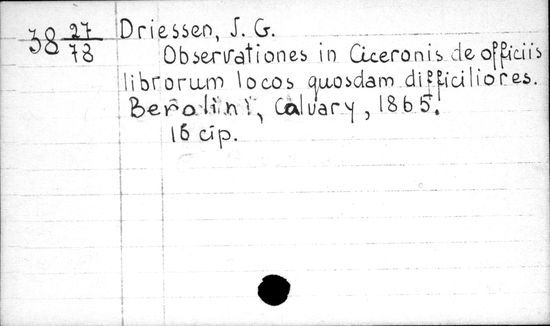 38 27/78
Driessen, J. G.
Observationes in Ciceronis de officiis
librorum locos quosdam difficiliores.
Berolini, Calvary, 1865.
16 cip.